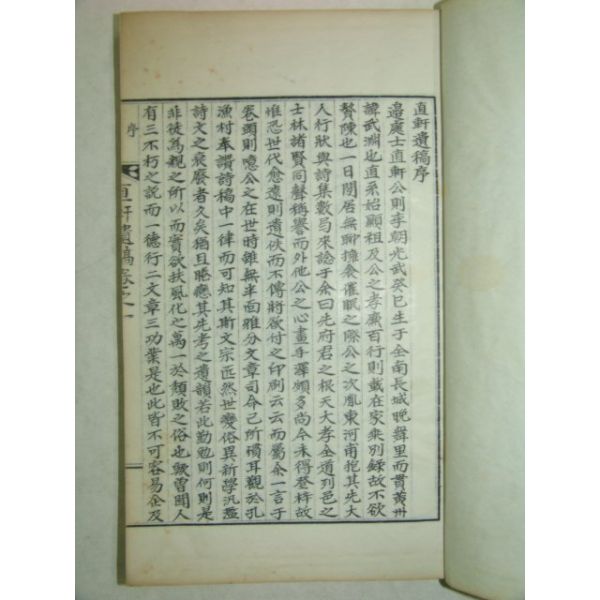 直軒遺稿序
邉處士直軒公則李朝光武癸巳生于全南長城晩舞里而貫黃州
諱武淵也直系始顯祖及公之孝廉百行則載在家乘別錄故不欲
贅陳也一日閒居無聊擁衾催眠之際公之次胤東河甫抱其先大
人行狀與詩集數局來諗于余曰先府君之根天大孝全道列邑之
士林諸賢同聲稱譽而外他公之心畫手澤頗多尚今未得登梓故
惟恐世代愈遠則遺佚而不傳將欲付之印刷云云而屬余一言于
卷頭則噫公之在世時雖無半面雅分文章司命已所稔耳觀於孔
漁村奉讚詩稿中一律而可知其斯文宗匠然世變俗異新學汎濫
詩文之衰廢者久矣猶且賂應其先考之遺韻若此勤勉則何則是
非徒爲親之所以而實欲扶風化之萬一於頹敗之俗也歟曾聞人
有三不朽之說而一德行二文章三功業是也此皆不可容易企及
序
直軒遺稿卷之一